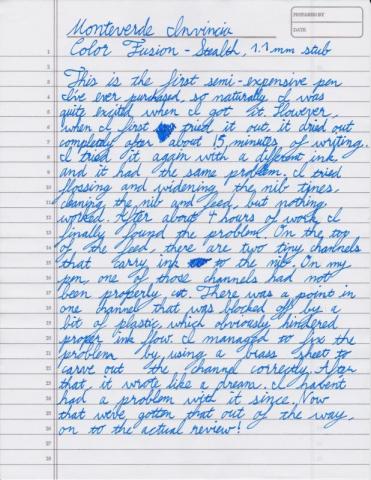 PREPARED BY
DATE
Monteverde Invincia
Color Fusion - Stealth, 1.1 mm stub
This is the first semi-expensive pen
I've ever purchased, so naturally I was
quite excited when I got it. However,
when I first tried it out, it dried out
completely after about 15 minutes of writing.
I tried it again with a different ink
and it had the same problem. I tried
flossing and widening the nib tynes,
cleaning the nib and feed, but nothing
worked. After about 4 hours of work, I
finally found the problem. On the top
of the feed, there are two tiny channels
that carry ink to the nib. On my
pen, one of those channels had not
been properly cut. There was a point in
one channel that was blocked off by a
bit of plastic, which obviously hindered
proper ink flow. I managed to fix the
problem by using a brass sheet to
carve out the channel correctly. After
that, it wrote like a dream. I haven't
had a problem with it since. Now
that we've gotten that out of the way,
on to the actual review!